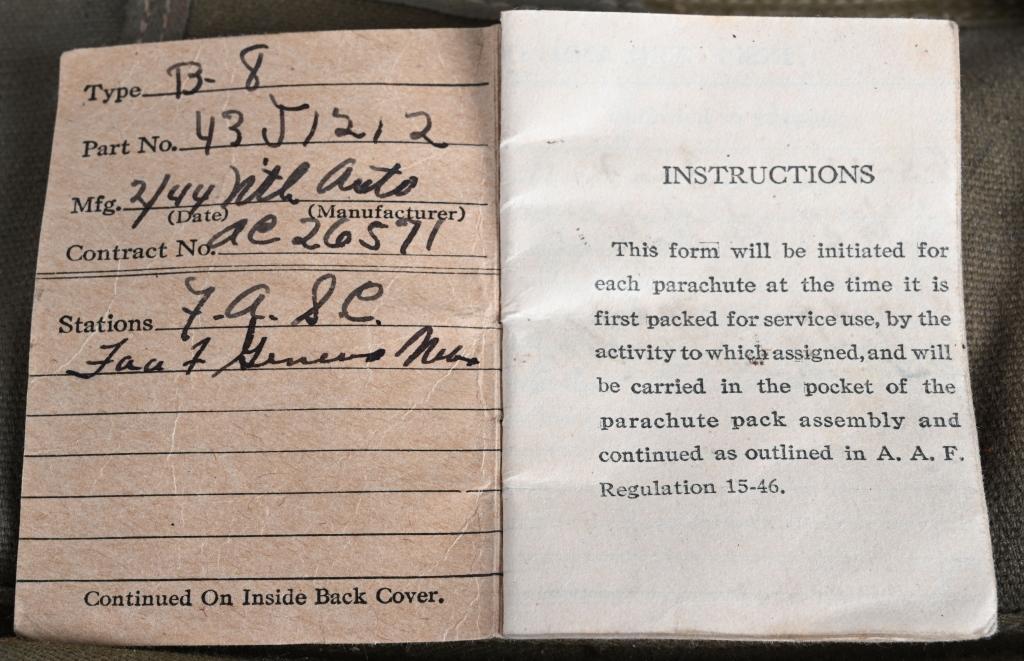 Type B-8
Part No. 43J1212
Mfg. 2/44 Ntl Auto
(Date) (Manufacturer)
Contract No. AC 26571
Stations F. A. S C.
Faa F Geneva Nebr
Continued On Inside Back Cover.
INSTRUCTIONS
This form will be initiated for
each parachute at the time it is
first packed for service use, by the
activity to which assigned, and will
be carried in the pocket of the
parachute pack assembly and
continued as outlined in A. A. F.
Regulation 15-46.